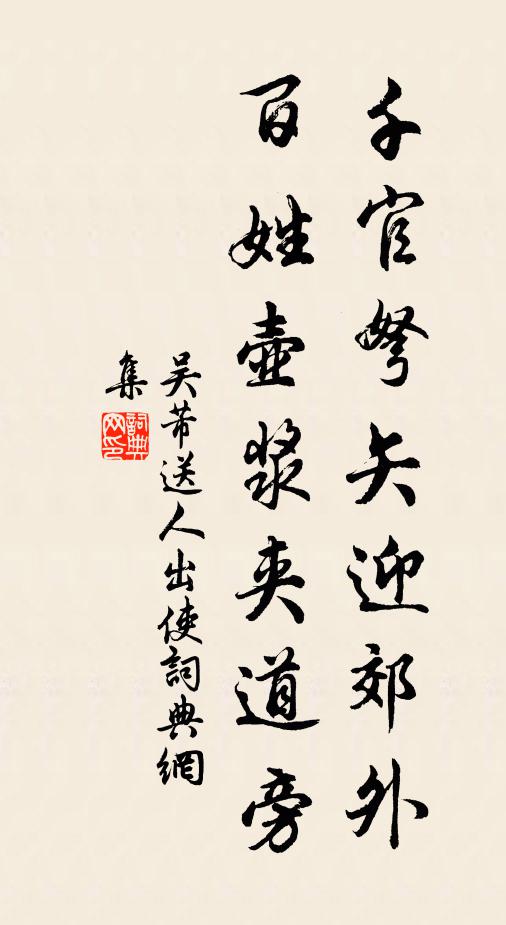 千官弩矢迎郊外
百姓壺漿夾道旁
吴芾送人出使詞典網
集
詞典网印